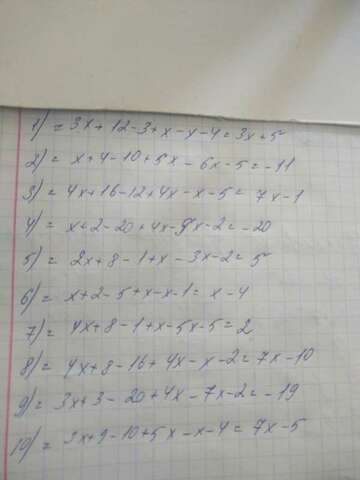 1) = 3x + 12 - 3 + x - x - 4 = 3x + 5
2) = x + 4 - 10 + 5x - 6x - 5 = -11
3) = 4x + 16 - 12 + 4x - x - 5 = 7x - 1
4) = x + 2 - 20 + 4x - 5x - 2 = -20
5) = 2x + 8 - 1 + x - 3x - 2 = 5
6) = x + 2 - 5 + x - x - 1 = x - 4
7) = 4x + 8 - 1 + x - 5x - 5 = 2
8) = 4x + 8 - 16 + 4x - x - 2 = 7x - 10
9) = 3x + 3 - 20 + 4x - 7x - 2 = -19
10) = 3x + 9 - 10 + 5x - x - 4 = 7x - 5